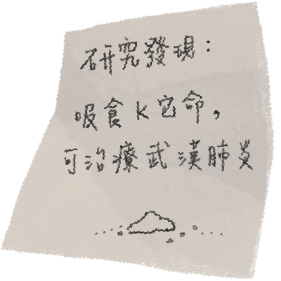 研究發現：
吸食K它命，
可治療武漢肺炎